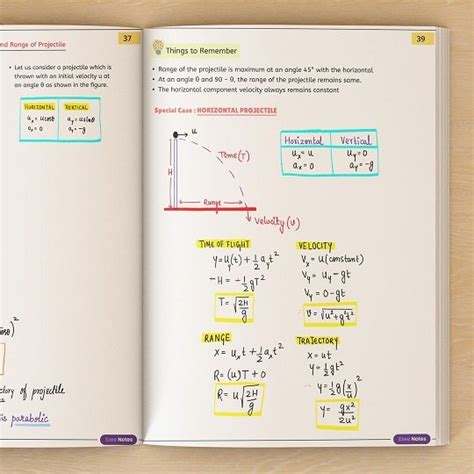 37
nd Range of Projectile
• Let us consider a projectile which is
thrown with an initial velocity u at
an angle θ as shown in the figure.
HORIZONTAL VERTICAL
uₓ = ucosθ u_y = usinθ
aₓ = 0 a_y = -g
)²
ctory of projectile
is parabolic
Notes
39
Things to Remember
• Range of the projectile is maximum at an angle 45° with the horizontal
• At an angle θ and 90 - θ, the range of the projectile remains same.
• The horizontal component velocity always remains constant
Special Case : HORIZONTAL PROJECTILE
u
Tome(T)
H
Range
Velocity (v)
Horizontal Vertical
uₓ = u u_y = 0
aₓ = 0 a_y = -g
TIME OF FLIGHT
y = u_y(t) + ½ a_y t²
-H = -½ gT²
T = √(2H/g)
RANGE
x = uₓt + ½ aₓt²
R = (u)T + 0
R = u√(2H/g)
VELOCITY
Vₓ = u (constant)
V_y = u_y - gt
V_y = 0 - gt
V = √(u² + g²t²)
TRAJECTORY
x = ut
y = ½ gt²
y = ½ g(x/u)²
y = gx²/2u²
Notes